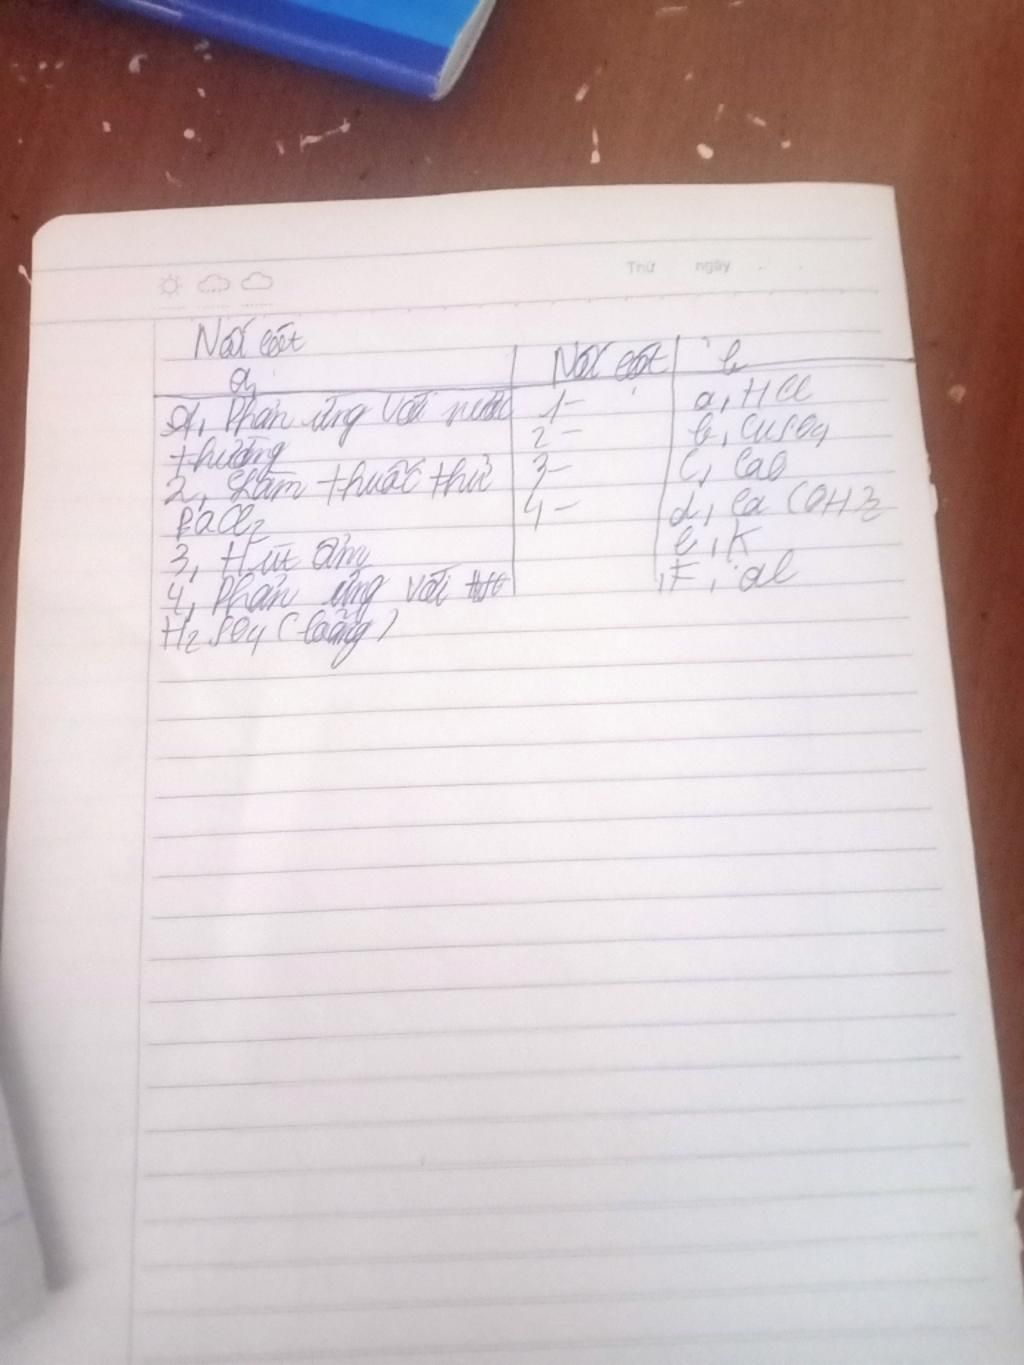 Thứ ngày
Nối cột
a, Nối cột b
1, Phản ứng với nước 1- a, HCl
thường 2- b, CuSO4
2, Làm thuốc thử 3- c, CaO
BaCl2 4- d, Ca(OH)2
3, Hút ẩm e, K
4, Phản ứng với F, al
H2SO4 (loãng)